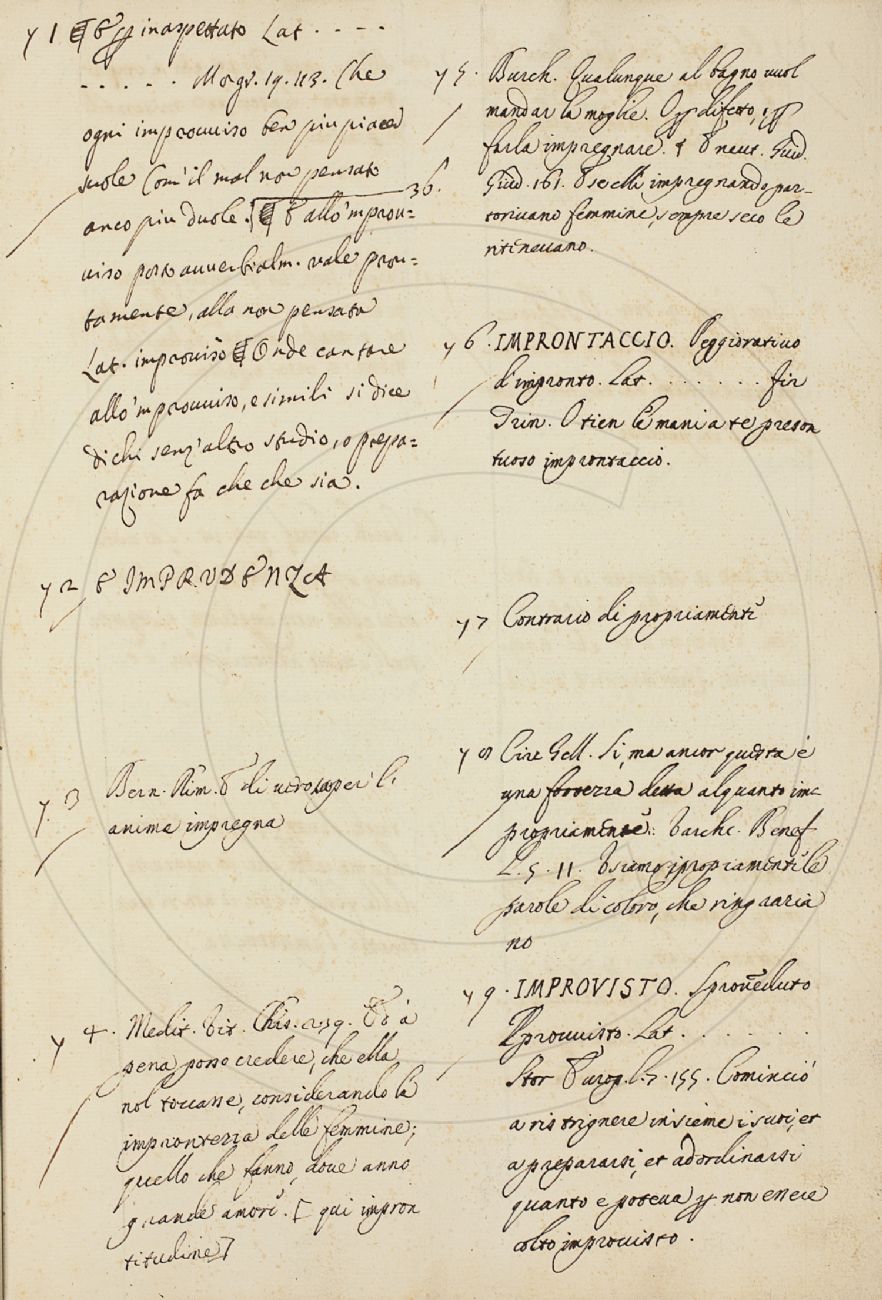 y 1 E per inaspettato Lat. . . . .
. . . . . Morg. 19. 43. Che
ogni improvviso ben piu piacer
suole Com' il mal non pensato
anco piu duole. 36. E all'improv=
viso posto avverbialm. vale prov=
tamente, alla non pensata
Lat. improviso Onde cantare
all'improvviso, e simili si dice
di chi senz'altro studio, o prepa=
razione fa che che sia.
y 2 E IMPRUDENZA
y 3 Bern. Rim. E di
anime impregna
y 4. Medit. Vit. Chris. 259. Ed a
pena posso credere, che ella
nol toccasse, considerando la
improntezza delle femmine;
quello che fanno, dove anno
grande amore. [qui impron
titudine]
y 5. Burch. Qualunque al bagno vuol
mandar la moglie. O per difetto, o per
farla impregnare. E neut. Guid.
Giud. 161. E se elli impregnando par-
torivano femmine, sempre seco le
ritenevano.
y 6. IMPRONTACCIO. Peggiorativo
d'impronto. Lat. . . . . . . . Fir
Trin. O tien le mani a te preson
tuoso improntaccio.
y 7 Contrario di propriamente
y 8 Circ. Gell. Si, ma ancor questa è
una fortezza detta alquanto im=
propriamente. Varch. Benef
l. 5. 11. Usiamo impropriamente le
parole di coloro, che ringrazia
no
y 9. IMPROVISTO. Sproveduto
Sprovvisto. Lat. . . . . . . .
Stor Europ. l. 7. 155. Cominciò
a ristrignere insieme i suoi, et
a prepararsi, et ad ordinarsi
quanto e poteva per non essere
colto improvisto.